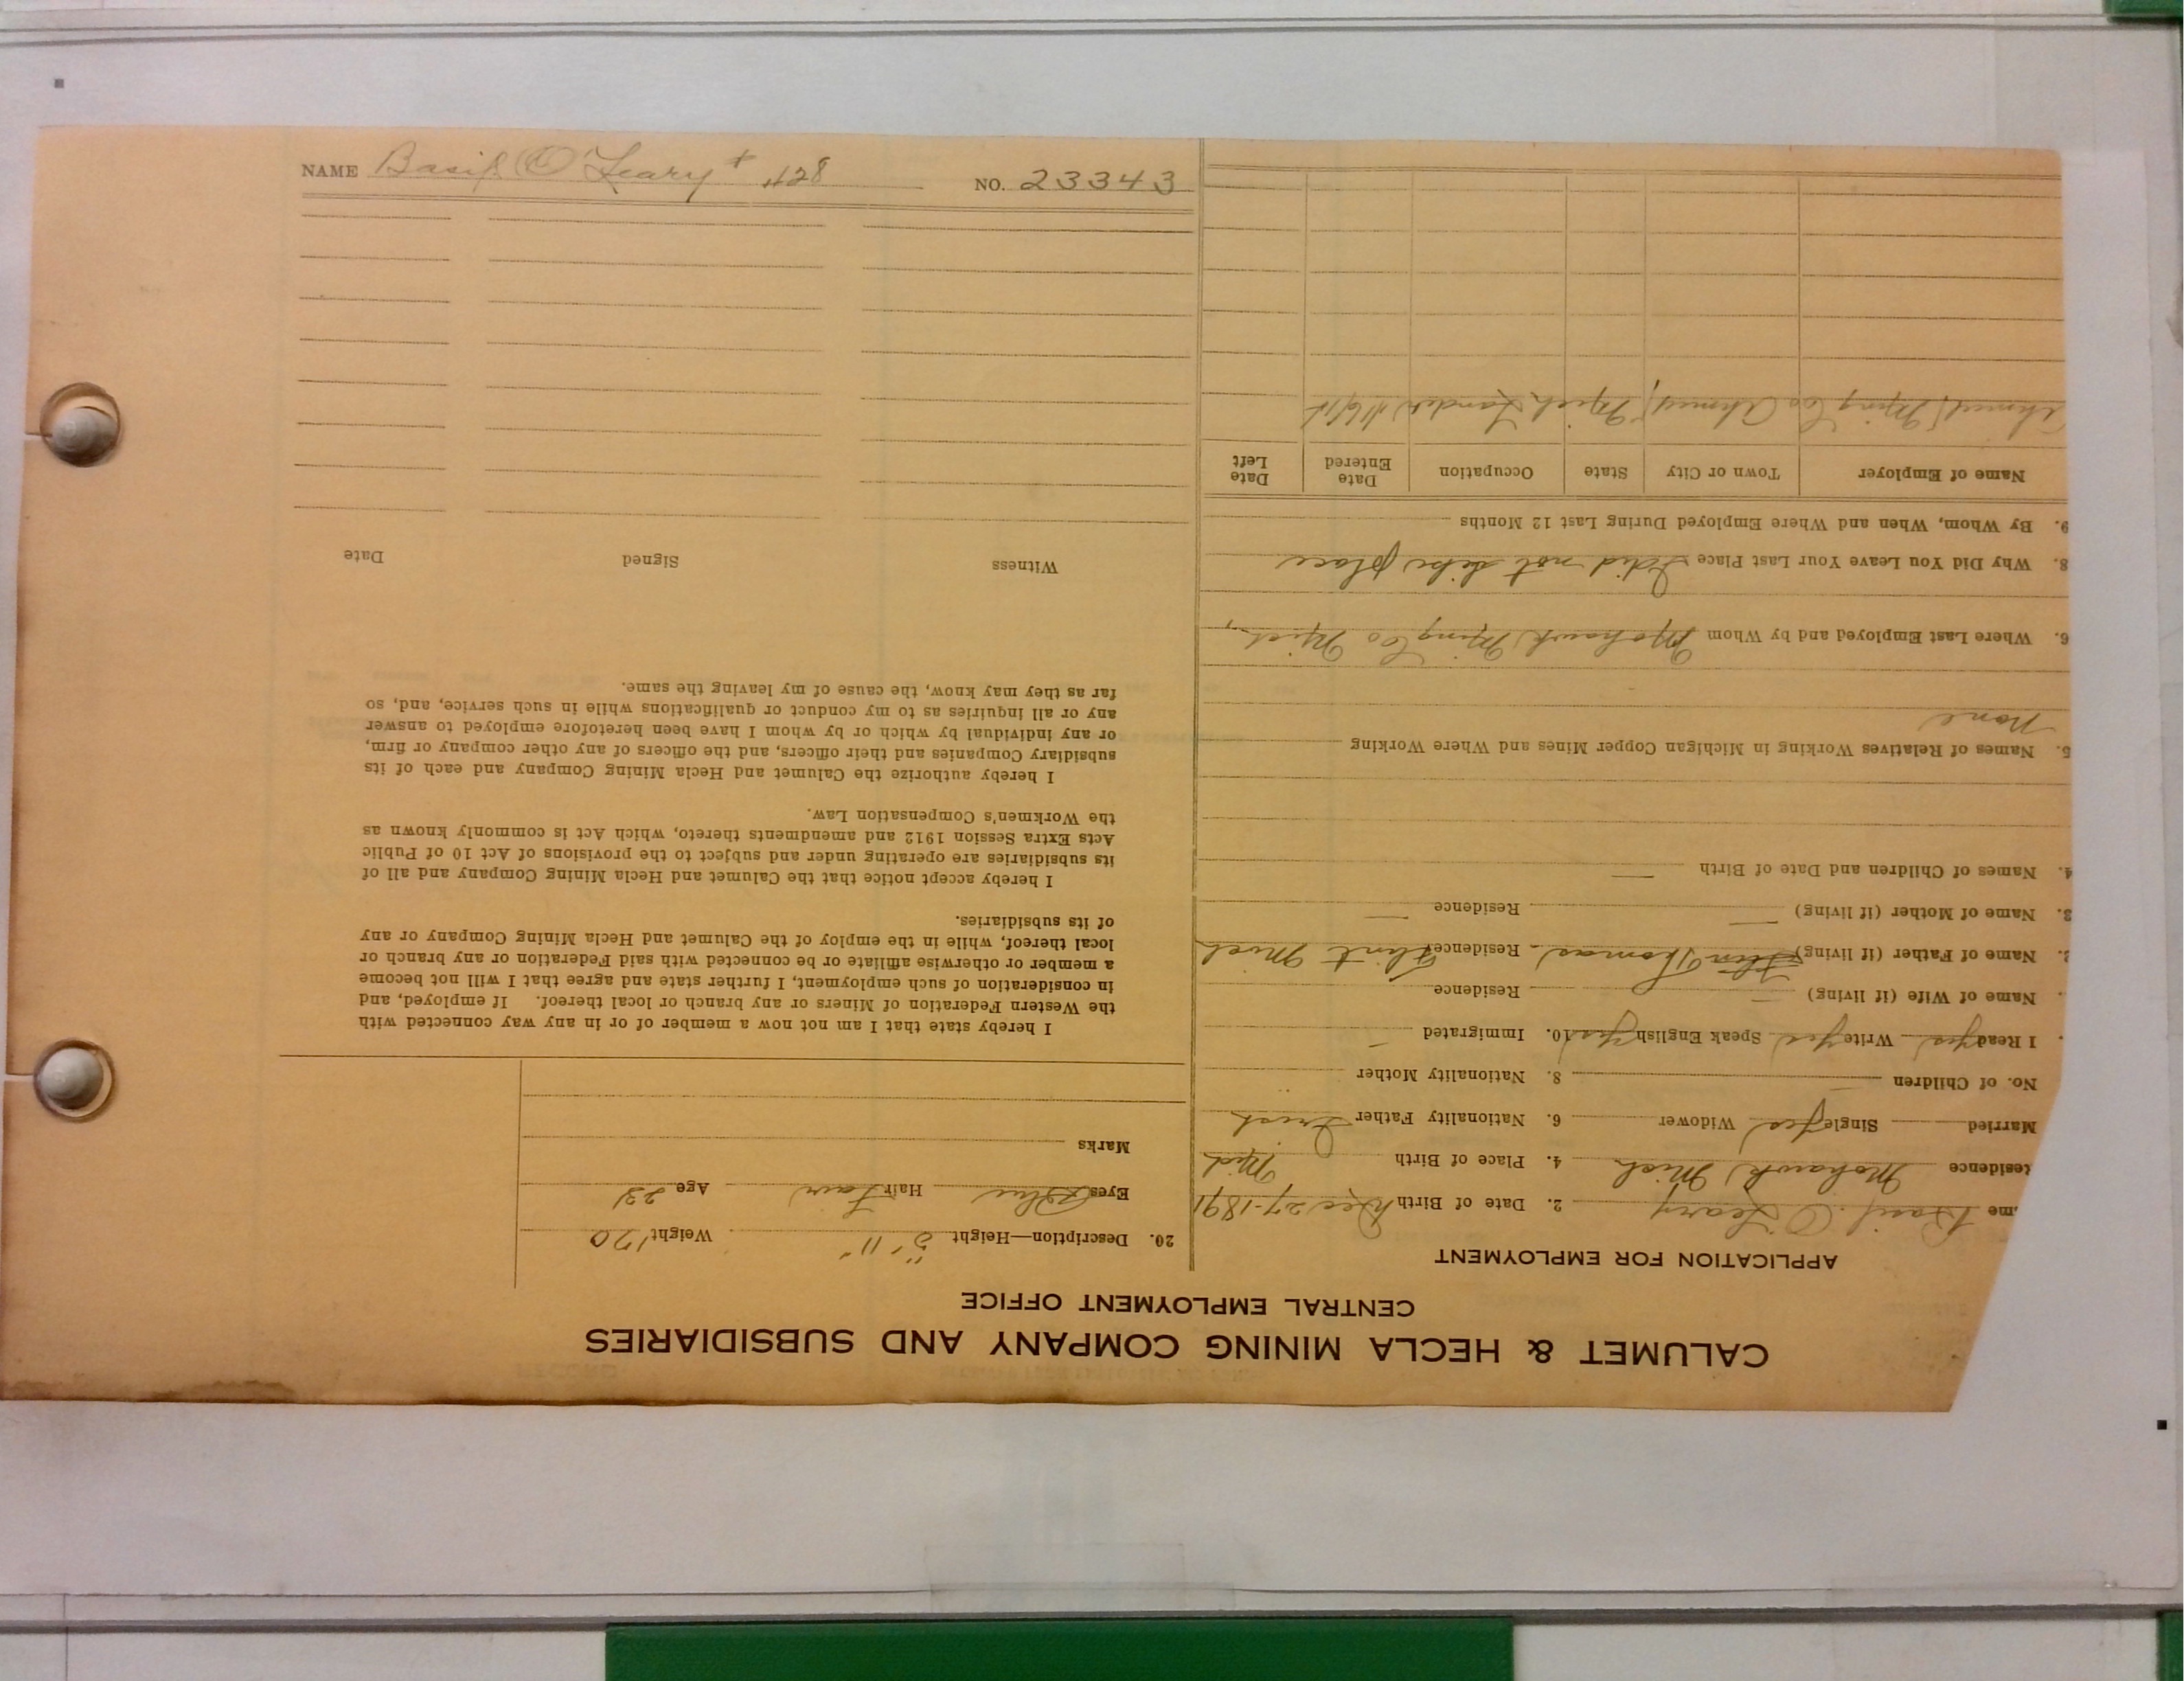 NAME Basil O'Leary + #28 NO. 23343
CALUMET & HECLA MINING COMPANY AND SUBSIDIARIES
CENTRAL EMPLOYMENT OFFICE
APPLICATION FOR EMPLOYMENT
me Basil O'Leary 2. Date of Birth Dec 27-1891
Residence Mohawk Mich 4. Place of Birth Mich
Married Single yes Widower 6. Nationality Father Irish
No. of Children 8. Nationality Mother
I Read yes Write yes Speak English yes 10. Immigrated
Name of Wife (if living) Residence
2. Name of Father (if living) Thomas Residence Flint Mich
3. Name of Mother (if living) Residence
4. Names of Children and Date of Birth
5. Names of Relatives Working in Michigan Copper Mines and Where Working
None
6. Where Last Employed and by Whom Mohawk Mining Co Mich,
8. Why Did You Leave Your Last Place I did not like place
9. By Whom, When and Where Employed During Last 12 Months
Name of Employer Town or City State Occupation Date Entered Date Left
Ahmeek Mining Co Ahmeek, Mich Lander
20. Description—Height 5' 11" Weight 170
Eyes Blue Hair Fair Age 23
Marks
I hereby state that I am not now a member of or in any way connected with
the Western Federation of Miners or any branch or local thereof. If employed, and
in consideration of such employment, I further state and agree that I will not become
a member or otherwise affiliate or be connected with said Federation or any branch or
local thereof, while in the employ of the Calumet and Hecla Mining Company or any
of its subsidiaries.
I hereby accept notice that the Calumet and Hecla Mining Company and all of
its subsidiaries are operating under and subject to the provisions of Act 10 of Public
Acts Extra Session 1912 and amendments thereto, which Act is commonly known as
the Workmen's Compensation Law.
I hereby authorize the Calumet and Hecla Mining Company and each of its
subsidiary Companies and their officers, and the officers of any other company or firm,
or any individual by which or by whom I have been heretofore employed to answer
any or all inquiries as to my conduct or qualifications while in such service, and, so
far as they may know, the cause of my leaving the same.
Witness Signed Date